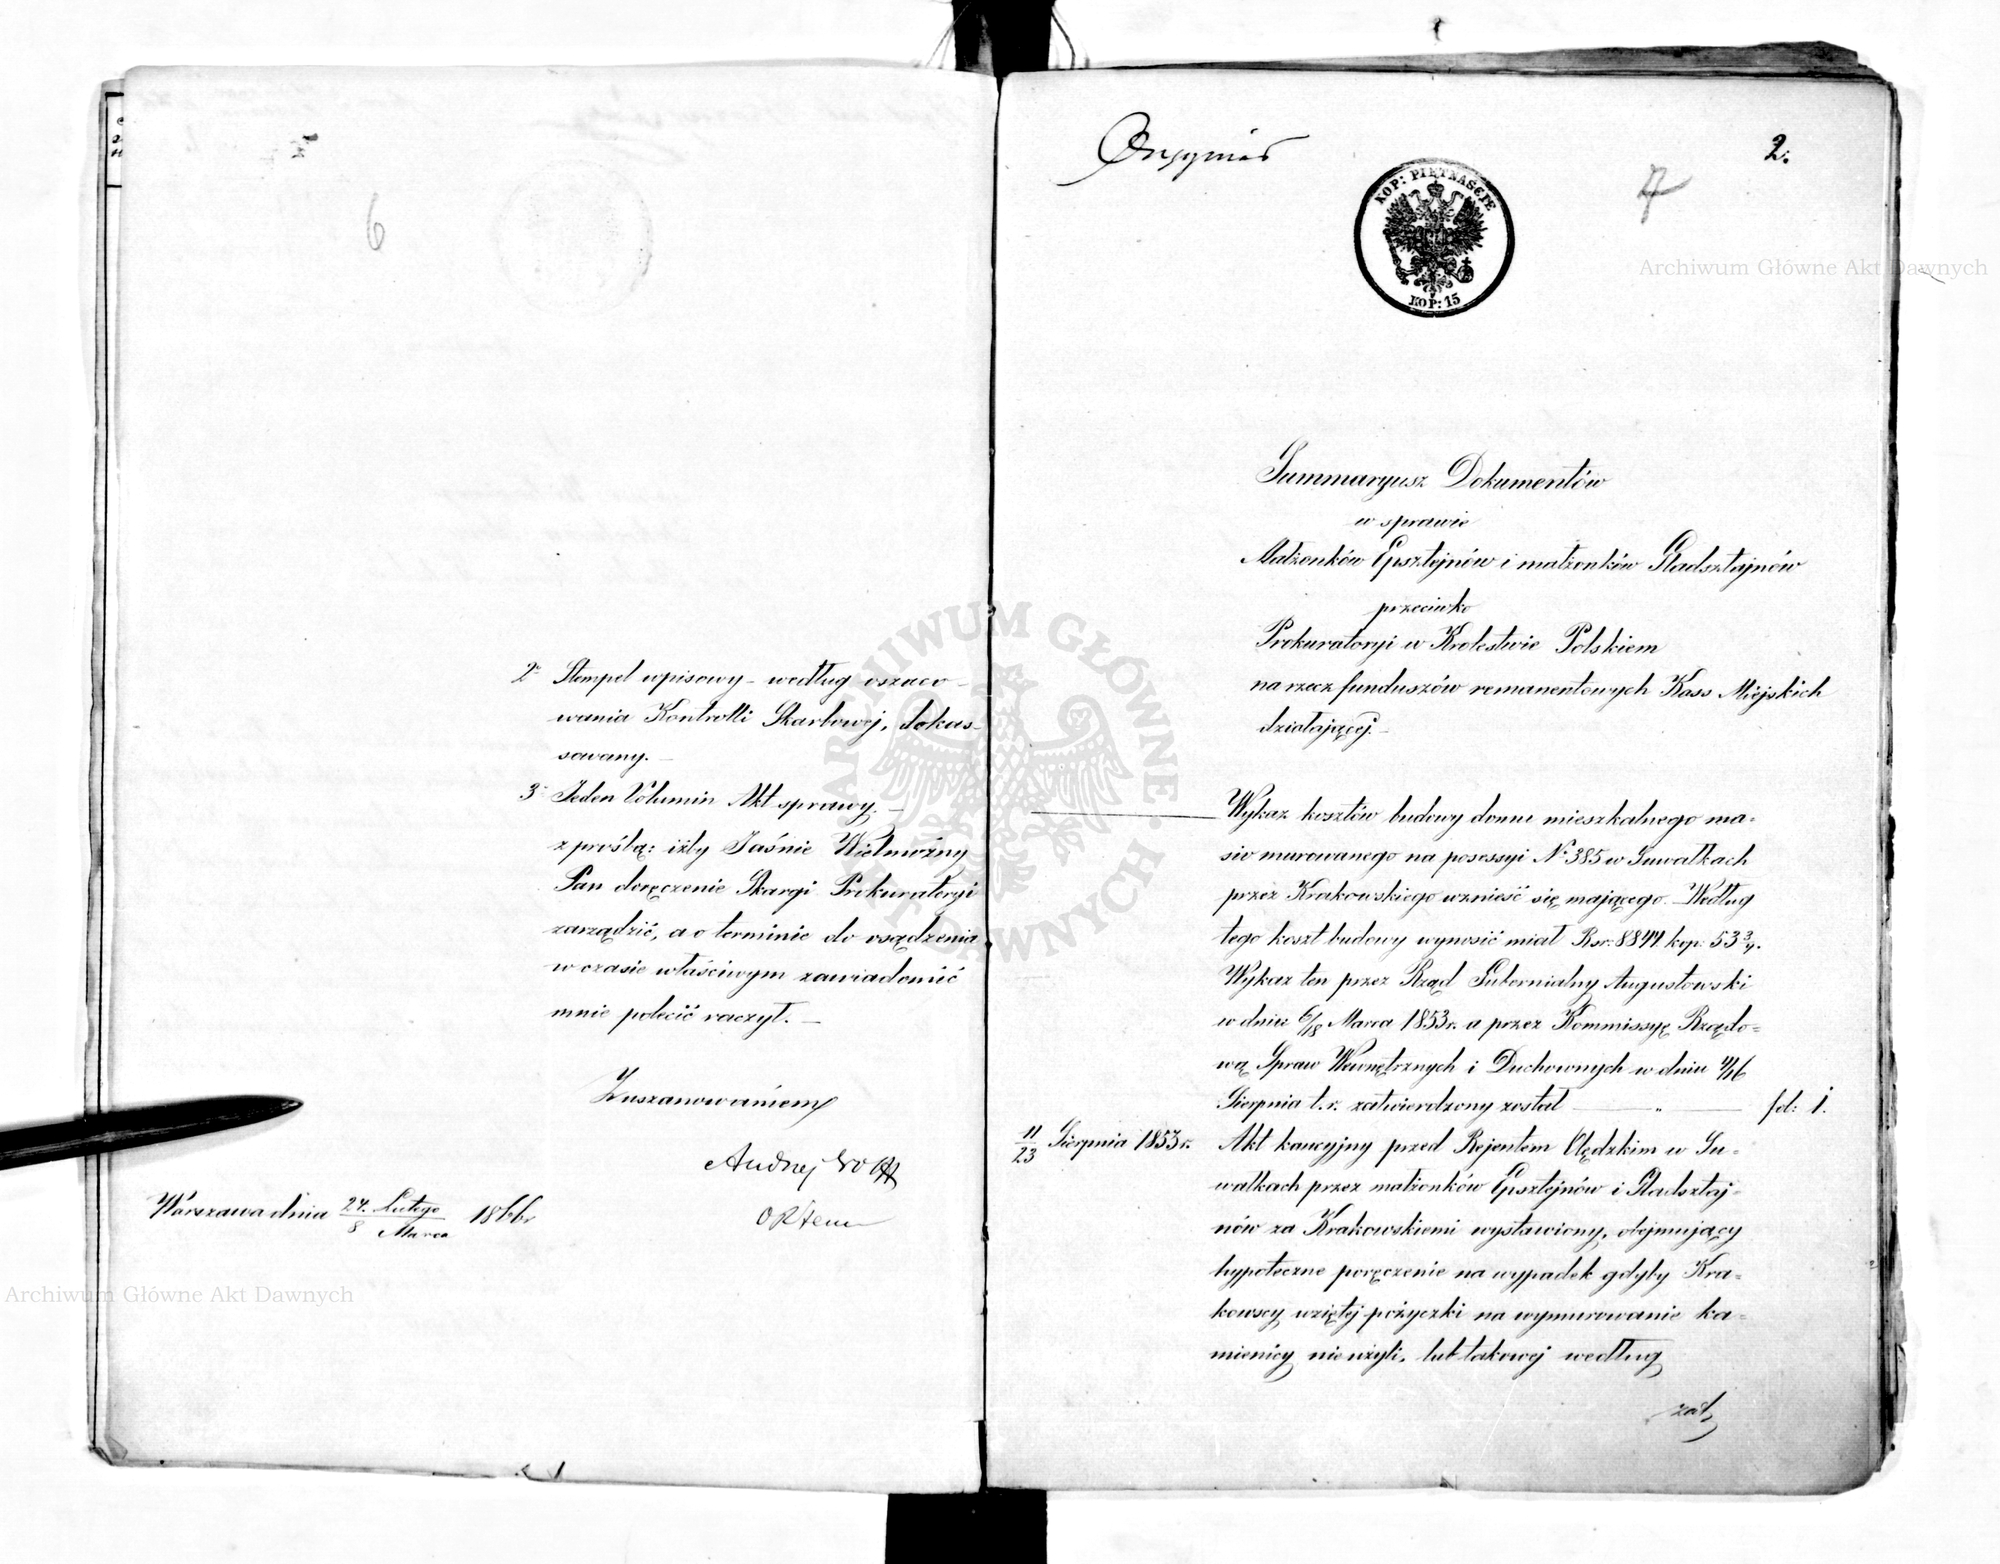 6
2° Stempel wpisowy – według oszaco-
wania Kontrolli Skarbowej, dokas-
sowany. –
3° Jeden Volumin Akt sprawy. –
z prośbą: iżby Jaśnie Wielmożny
Pan doręczenie Skargi Prokuratoryi
zarządzić, a o terminie do osądzenia
w czasie właściwym zawiadomić
mnie polecić raczył. –
Z uszanowaniem
Andrzej
Warszawa dnia 24. Lutego / 8 Marca 1866r.
Oryginał
2.
7
KOP: PIĘTNAŚCIE
KOP: 15
Summaryusz Dokumentów
w sprawie
Małżonków Epsztejnów i małżonków Gladsztajnów
przeciwko
Prokuratoryi w Krolestwie Polskiem
na rzecz funduszów remanentowych Kass Miejskich
działającej. –
Wykaz kosztów budowy domu mieszkalnego ma-
sio murowanego na posessyi N° 385 w Suwałkach
przez Krakowskiego wznieść się mającego. – Według
tego koszt budowy wynosić miał Rsr: 8844 kop: 53 3/4.
Wykaz ten przez Rząd Gubernialny Augustowski
w dniu 6/18 Marca 1853 r. a przez Kommissyę Rządo=
wą Spraw Wewnętrznych i Duchownych w dniu 4/16
Sierpnia t. r. zatwierdzony został — „ — fol: 1.
11/23 Sierpnia 1853 r. Akt kaucyjny przed Rejentem Olędzkim w Su=
wałkach przez małżonków Epsztejnów i Gladsztaj=
nów za Krakowskiemi wystawiony, obejmujący
hypoteczne poręczenie na wypadek gdyby Kra=
kowscy wziętej pożyczki na wymurowanie ka=
mienicy nie użyli, lub takowej według
Archiwum Główne Akt Dawnych
Archiwum Główne Akt Dawnych
ARCHIWUM GŁÓWNE AKT DAWNYCH